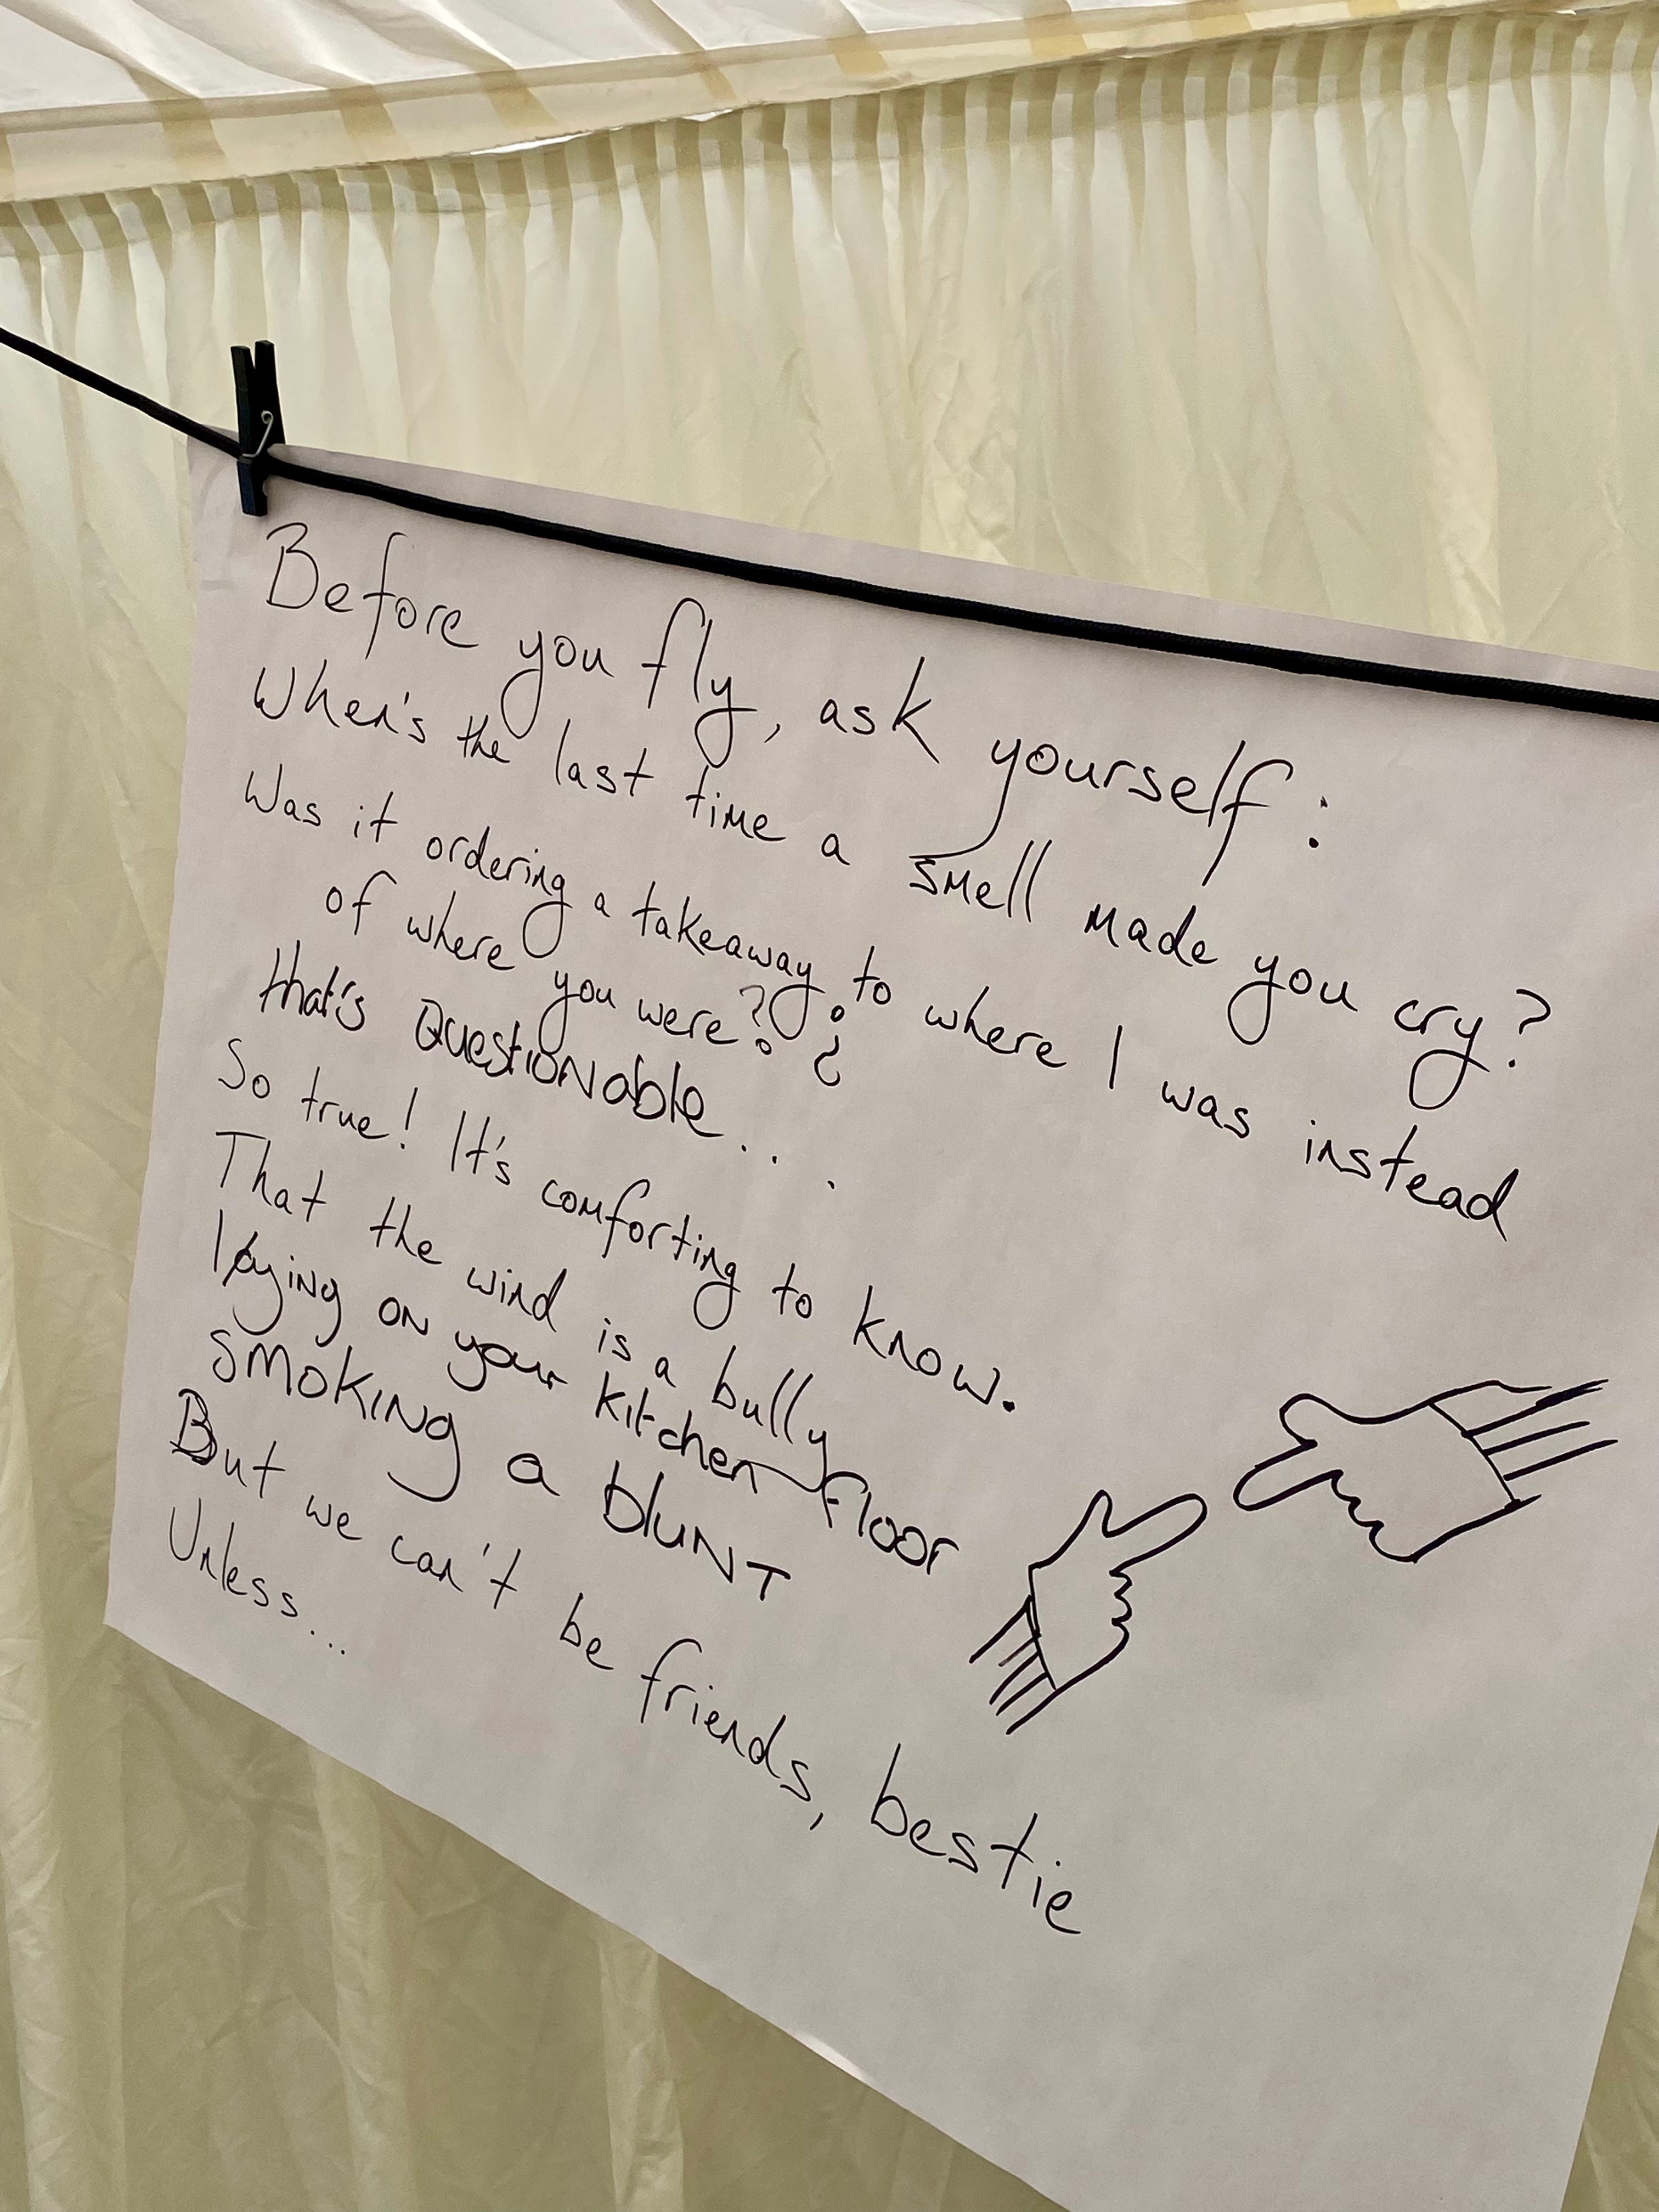 Before you fly, ask yourself:
When's the last time a smell made you cry?
Was it ordering a takeaway to where I was instead
of where you were? ¿
that's Questionable...
So true! It's comforting to know.
That the wind is a bully
laying on your kitchen floor
smoking a blunt
But we can't be friends, bestie
Unless...